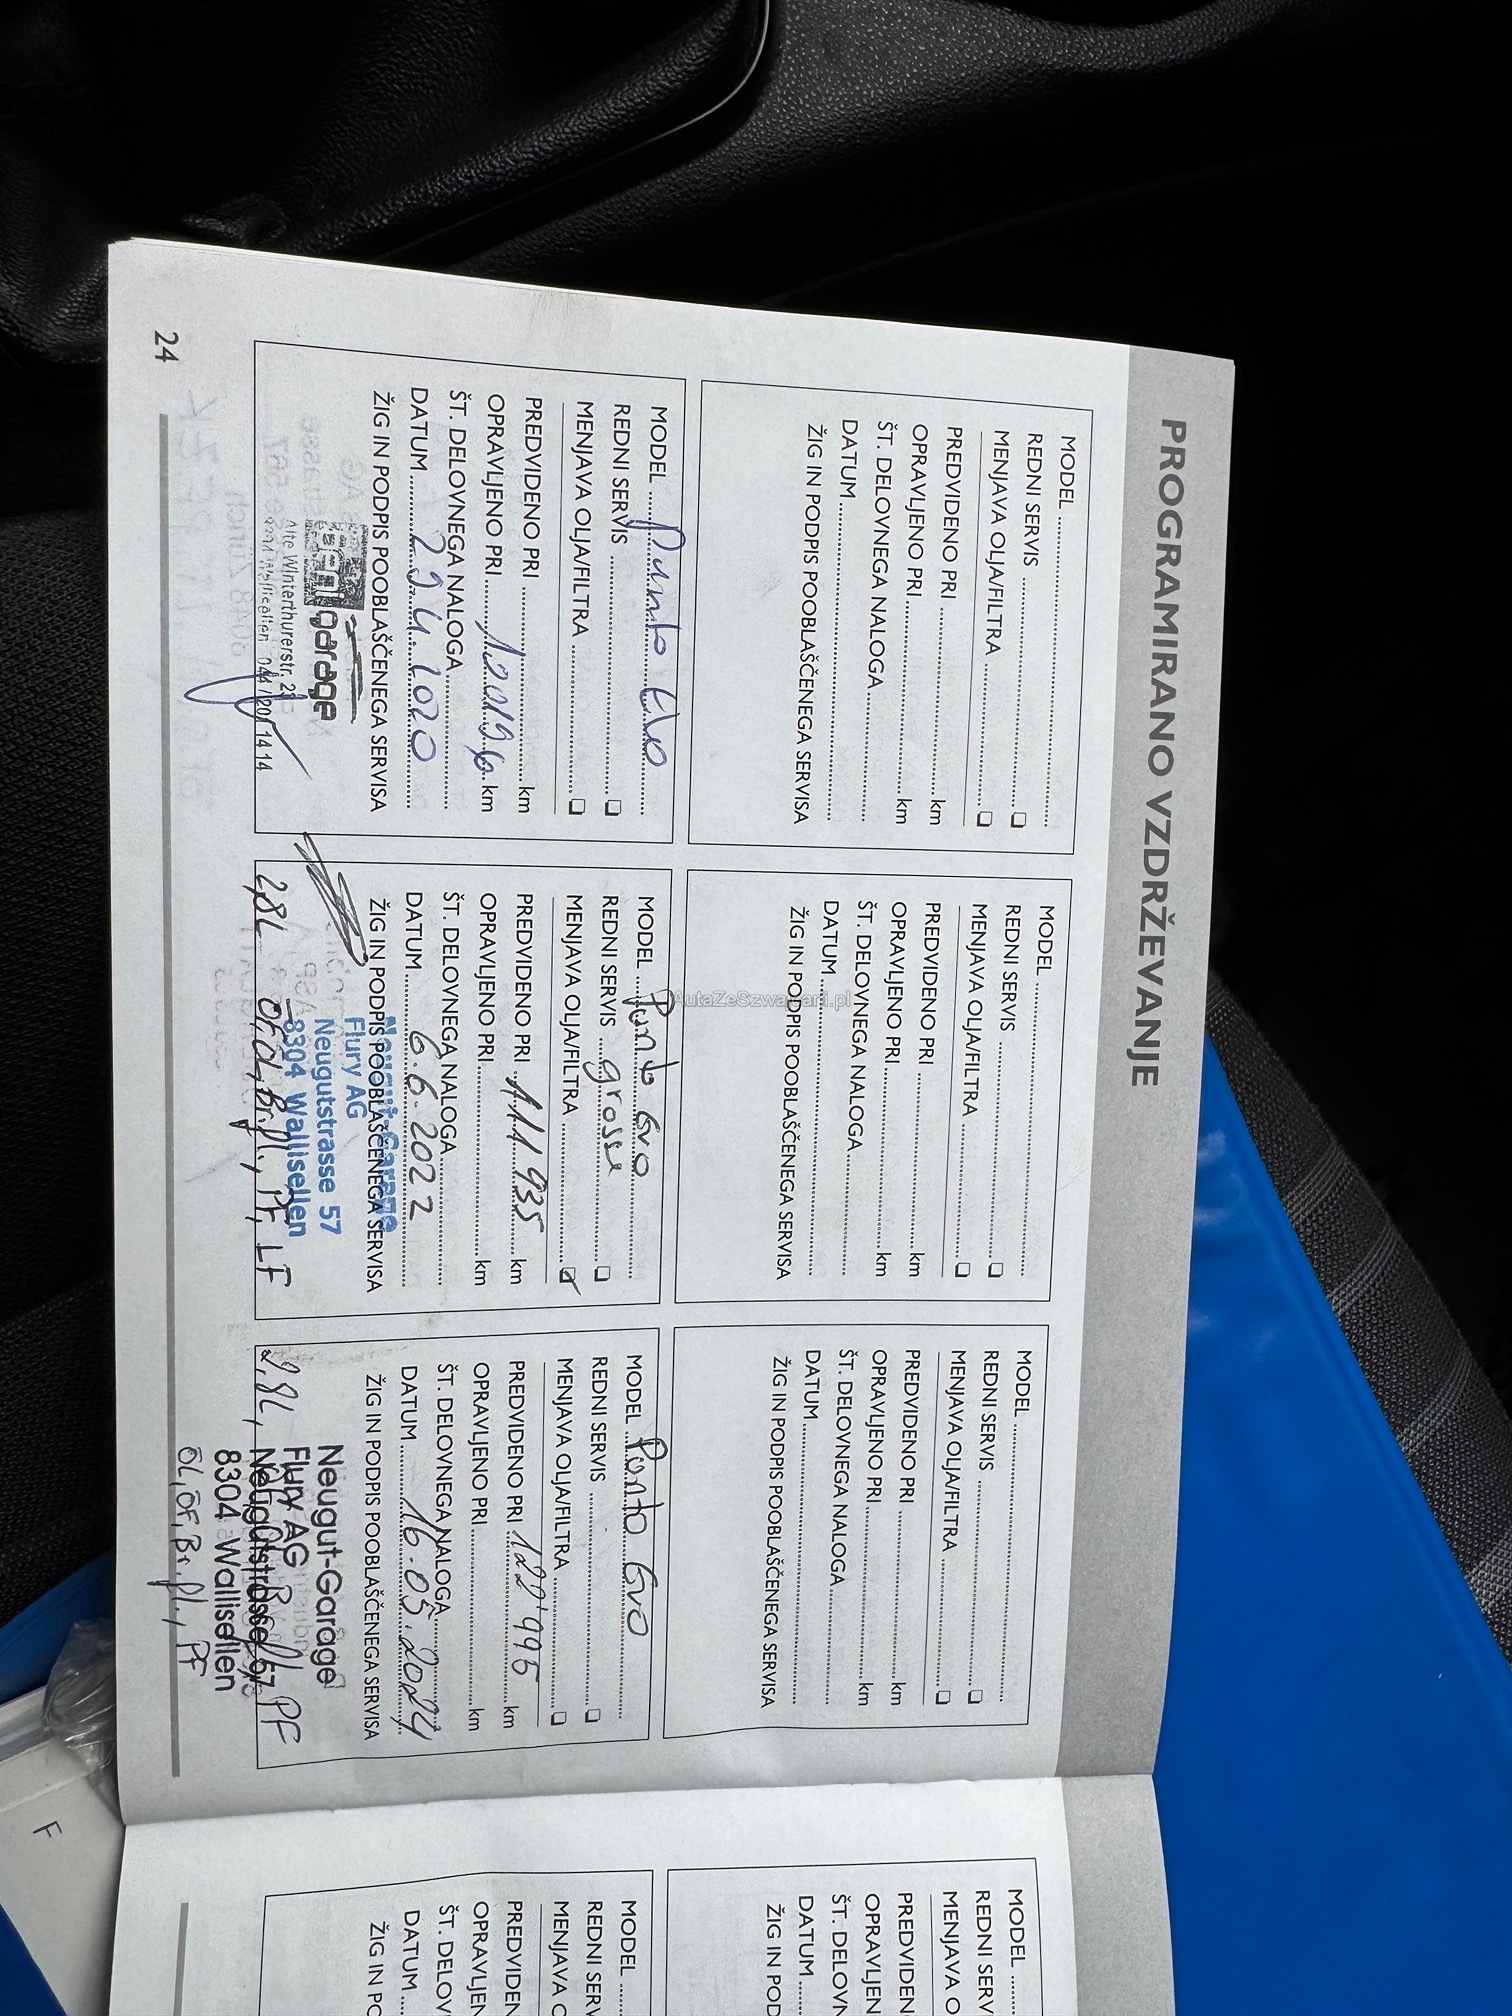 PROGRAMIRANO VZDRŽEVANJE
MODEL
REDNI SERVIS
MENJAVA OLJA/FILTRA
PREDVIDENO PRI km
OPRAVLJENO PRI km
ŠT. DELOVNEGA NALOGA
DATUM
ŽIG IN PODPIS POOBLAŠČENEGA SERVISA
MODEL
REDNI SERVIS
MENJAVA OLJA/FILTRA
PREDVIDENO PRI km
OPRAVLJENO PRI km
ŠT. DELOVNEGA NALOGA
DATUM
ŽIG IN PODPIS POOBLAŠČENEGA SERVISA
MODEL
REDNI SERVIS
MENJAVA OLJA/FILTRA
PREDVIDENO PRI km
OPRAVLJENO PRI km
ŠT. DELOVNEGA NALOGA
DATUM
ŽIG IN PODPIS POOBLAŠČENEGA SERVISA
MODEL Punto Evo
REDNI SERVIS
MENJAVA OLJA/FILTRA
PREDVIDENO PRI km
OPRAVLJENO PRI km
ŠT. DELOVNEGA NALOGA
DATUM 29.4.2020
ŽIG IN PODPIS POOBLAŠČENEGA SERVISA
garage
Alte Winterthurerstr.
MODEL Punto Evo
REDNI SERVIS grosse
MENJAVA OLJA/FILTRA
PREDVIDENO PRI 111935 km
OPRAVLJENO PRI km
ŠT. DELOVNEGA NALOGA
DATUM 6.6.2022
ŽIG IN PODPIS POOBLAŠČENEGA SERVISA
Neugut-Garage
Flury AG
Neugutstrasse 57
8304 Wallisellen
2,8L ÖF, Öl, Br.fl., PF, LF
MODEL Punto Evo
REDNI SERVIS
MENJAVA OLJA/FILTRA
PREDVIDENO PRI 122'995 km
OPRAVLJENO PRI km
ŠT. DELOVNEGA NALOGA
DATUM 16.05.2024
ŽIG IN PODPIS POOBLAŠČENEGA SERVISA
Neugut-Garage
Flury AG
2,8L, Neugutstrasse 57 PF
8304 Wallisellen
ÖL, ÖF, Br.fl., PF
24
MODEL
REDNI SERV
MENJAVA O
PREDVIDEN
OPRAVLJEN
ŠT. DELOV
DATUM
ŽIG IN POD
MODEL
REDNI SERV
MENJAVA O
PREDVIDEN
OPRAVLJEN
ŠT. DELOV
DATUM
ŽIG IN PO
F
AutaZeSzwajcarii.pl